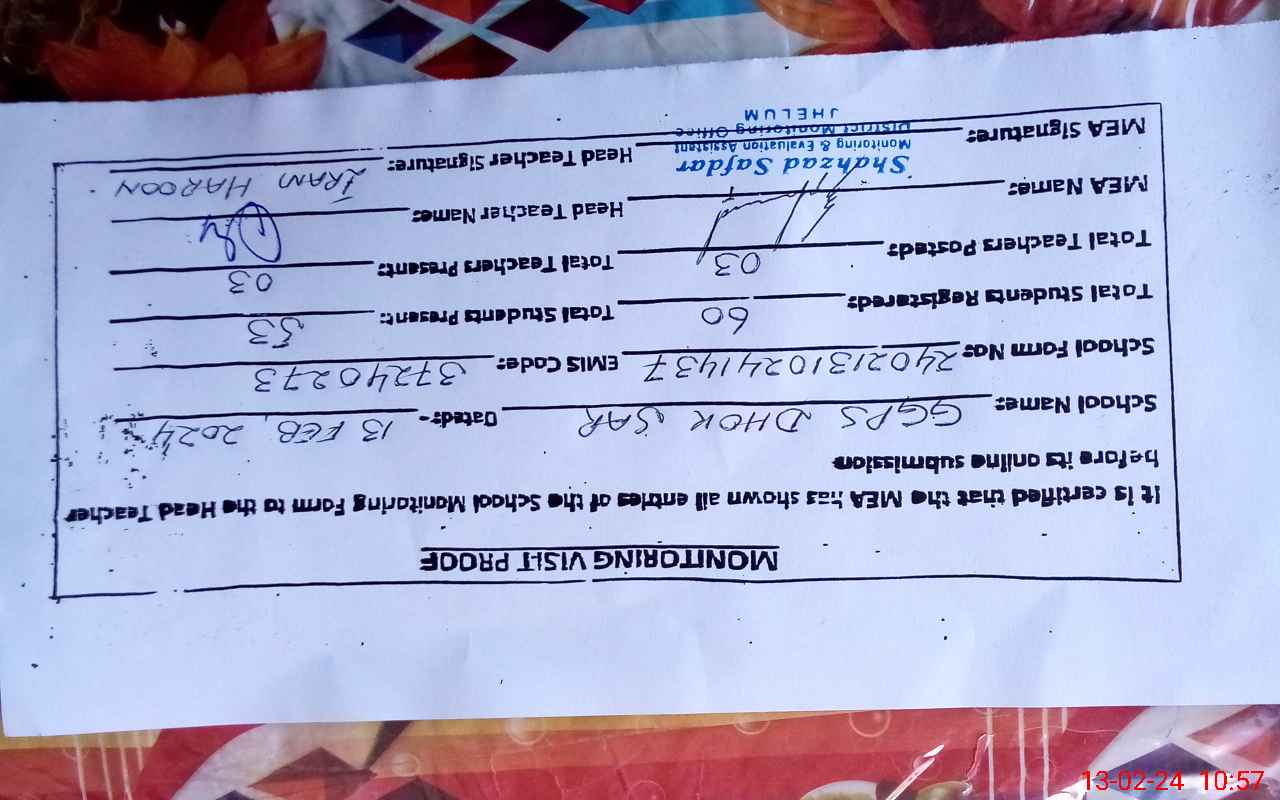 MONITORING VISIT PROOF
It is certified that the MEA has shown all entries of the School Monitoring Form to the Head Teacher
before its online submission
School Name: GGPS DHOK SAR Dated:- 13 FEB, 2024
School Form No: 24021310241437 EMIS Code: 37240273
Total Students Registered: 60 Total Students Present: 53
Total Teachers Posted: 03 Total Teachers Present: 03
MEA Name: Head Teacher Name:
MEA Signature: Head Teacher Signature: IRAM HAROON
Shahzad Safdar
Monitoring & Evaluation Assistant
District Monitoring Office
JHELUM
13-02-24 10:57